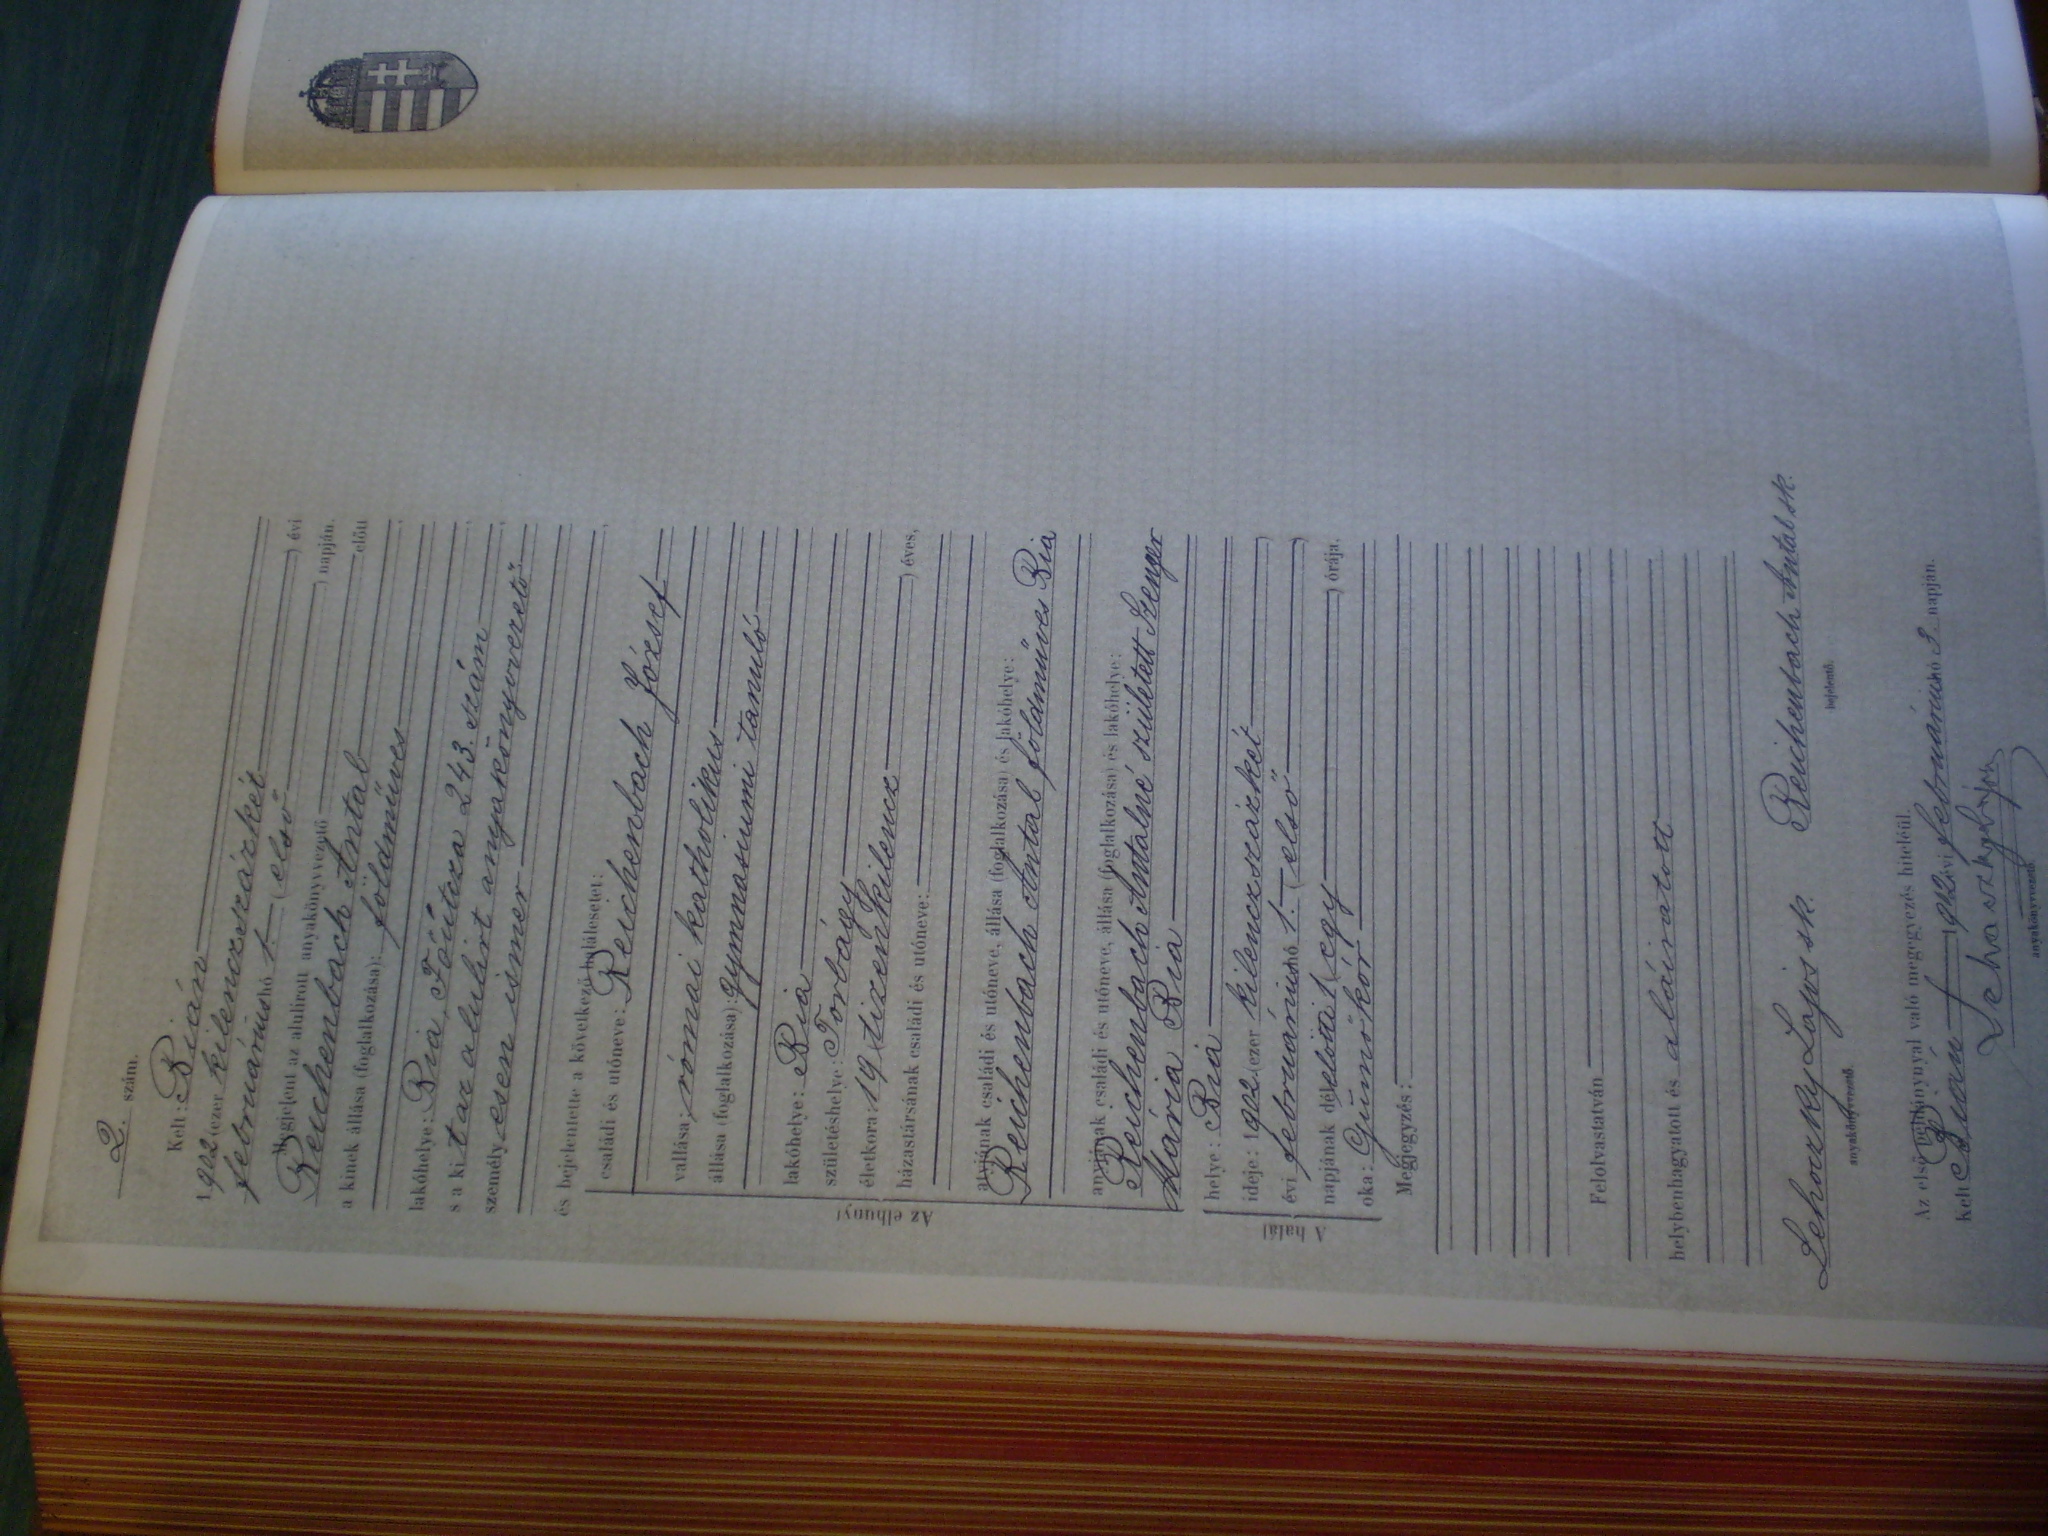 2. szám.
Kelt: Bián
1902 (ezer kilenczszázkét ) évi
februárius hó 1. (első ) napján.
Megjelent az alulirott anyakönyvvezető előtt
Reichenbach Antal
a kinek állása (foglalkozása): földmüves
lakóhelye: Bia, Főutcza 243. szám
s a kit az alulirt anyakönyvvezető
személyesen ismer
és bejelentette a következő halálesetet:
családi és utóneve: Reichenbach József
vallása: római katholikus
állása (foglalkozása): gymnasiumi tanuló
lakóhelye: Bia
születéshelye: Torbágy
életkora: 19 (tizenkilencz ) éves,
házastársának családi és utóneve:
Az elhunyt
atyjának családi és utóneve, állása (foglalkozása) és lakóhelye:
Reichenbach Antal földmüves Bia
anyjának családi és utóneve, állása (foglalkozása) és lakóhelye:
Reichenbach Antalné született Szenger
Mária Bia
helye: Bia
ideje: 1902 (ezer kilenczszázkét )
évi februárius hó 1. (első )
napjának délelőtti 1 (egy ) órája,
oka: Gümőkór
A halál
Megjegyzés:
Felolvastatván
helybenhagyatott és aláiratott
Lehoczky Lajos sk. Reichenbach Antal sk.
anyakönyvvezető. bejelentő.
Az első példánynyal való megegyezés hiteléül.
Kelt Bián 1902 évi februárius hó 2. napján.
anyakönyvvezető.